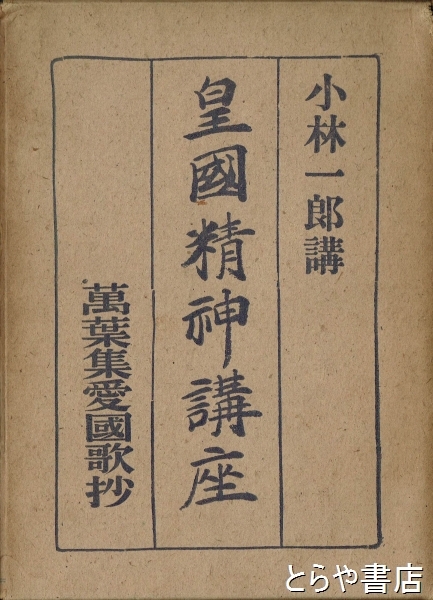 小林一郎講
皇國精神講座
萬葉集愛國歌抄
とらや書店